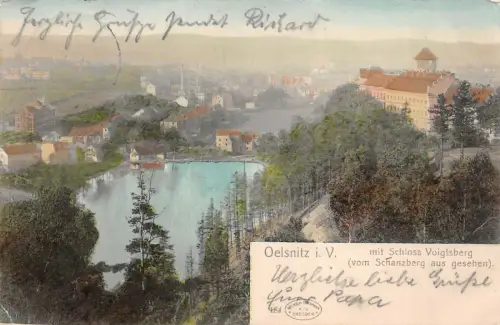 Herzliche Grüße sendet Richard
Oelsnitz i. V. mit Schloss Voigtsberg
(vom Schanzberg aus gesehen).
Herzliche liebe Grüße
Papa